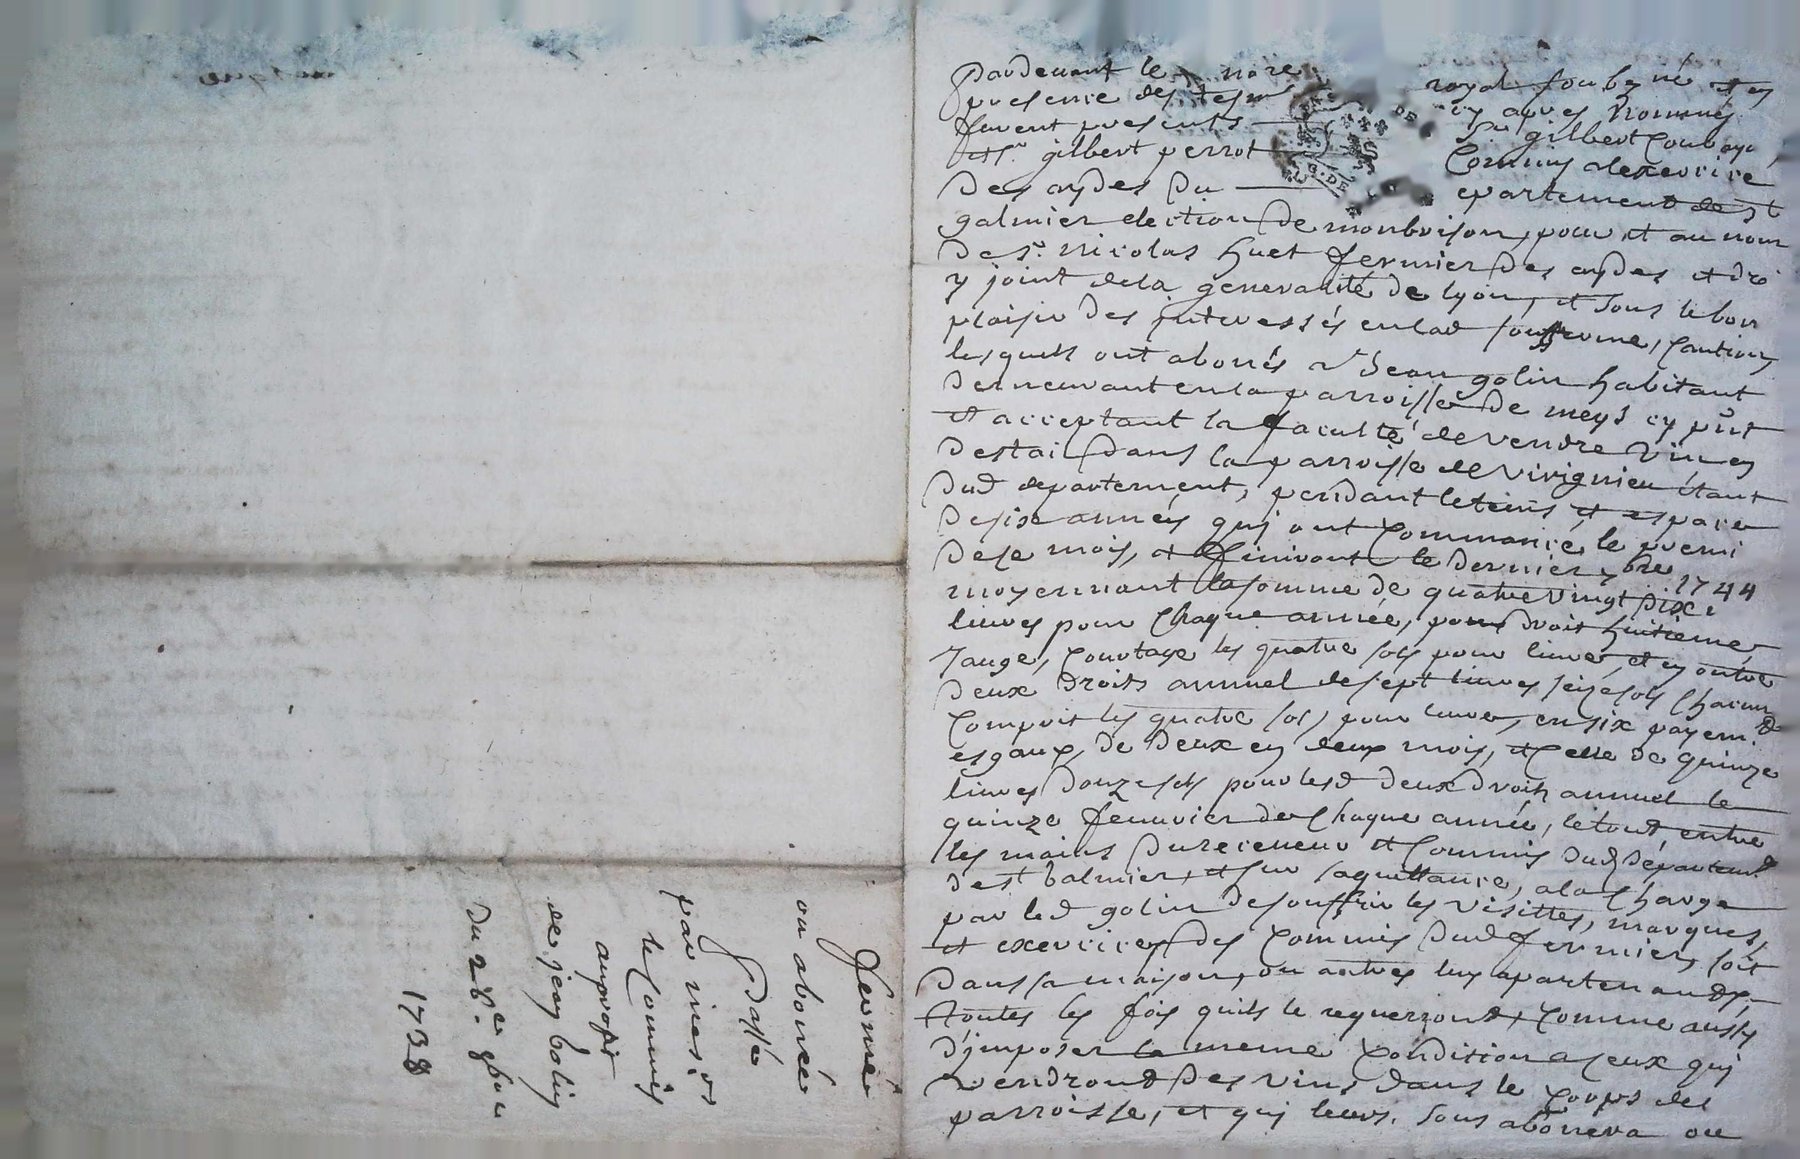 pardevant le nore royal soubzné et en
presence des tesm cy apres nommés
furent presents Sr gilbert
et Sr gilbert perrot Commis alexercice
des aydes du epartement de St
galmier election de monbrison, pour et au nom
de Sr. nicolas huet fermier des aydes et droi
y joint dela generalité de lyon, et sous le bon
plaisir des interessés enlad sousferme, cautions
lesquels ont abonés a Jean golin habitant
demeurant en la parroisse de meys cy pnt
et acceptant la faculté de vendre vin en
destail dans la parroisse de virignieu étant
dud departement, pendant le tems et espace
de six années qui ont commancé le premi
de ce mois, et finiront le dernier 7bre 1744
moyennant la somme de quatre vingt dix
livres pour chaque année, pour droit huitieme,
Jauge, courtage les quatre sols pour livre, et en outre
deux droits annuel de sept livres seize sols chacun
compris les quatre sols pour livre, en six payem
esgaux, de deux en deux mois, et celle de quinze
livres douze sols pour lesd deux droits annuel le
quinze fevrier de chaque année, le tout entre
les mains du receveur et commis dud département
de st Galmier, et sur sa quittance, a la charge
par led golin de souffrir les visittes, marques,
et exercices des commis dud fermier, soit
dans sa maison, ou autres luy apartenandt,
toutes les fois quils le requerront, comme aussy
d'imposer la meme condition a ceux qui
vendront des vins dans le corps de
parroisse, et qui leurs sous abonera ou
ferme
ou abonée
passé
par mes. rs
le commis
au profit
de jean golin
du 28e. 8bre
1738